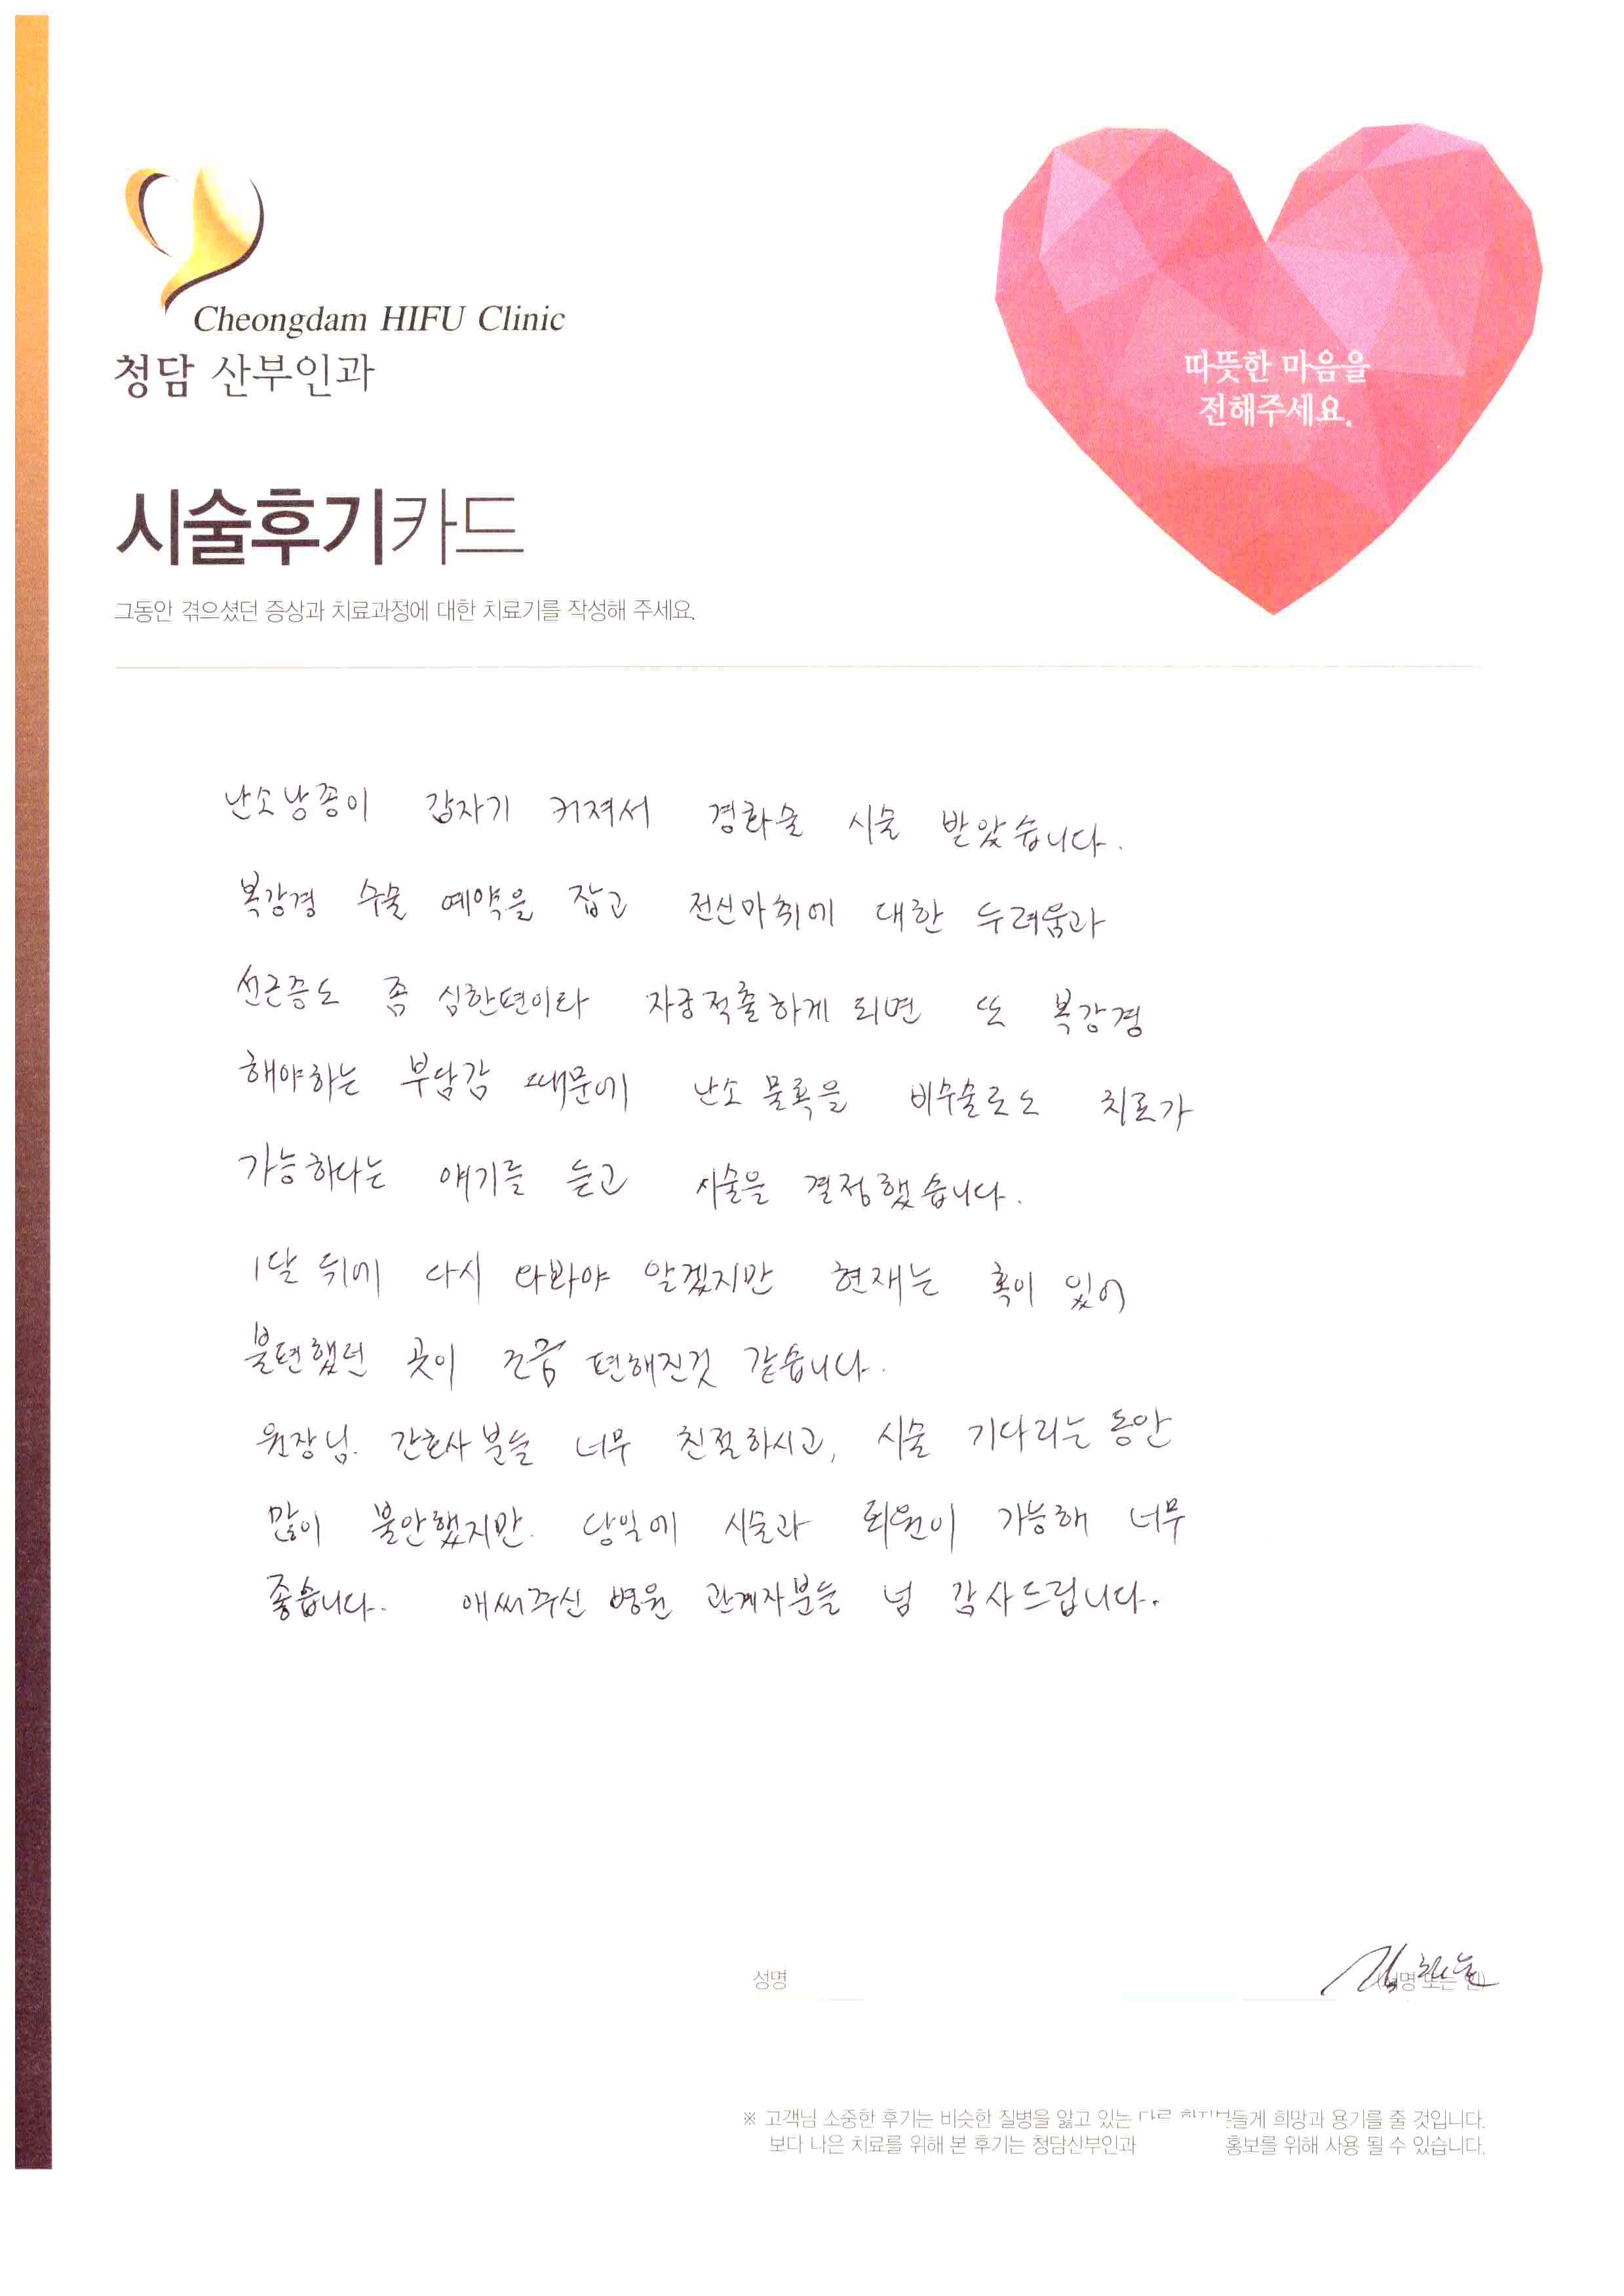 Cheongdam HIFU Clinic
청담 산부인과
따뜻한 마음을
전해주세요.
시술후기카드
그동안 겪으셨던 증상과 치료과정에 대한 치료기를 작성해 주세요.
난소낭종이 갑자기 커져서 경화술 시술 받았습니다.
복강경 수술 예약을 잡고 전신마취에 대한 두려움과
선근증도 좀 심한편이라 자궁적출하게 되면 또 복강경
해야하는 부담감 때문에 난소 물혹을 비수술로도 치료가
가능하다는 얘기를 듣고 시술을 결정했습니다.
1달 뒤에 다시 와봐야 알겠지만 현재는 혹이 있어
불편했던 곳이 조금 편해진것 같습니다.
원장님. 간호사분들 너무 친절하시고, 시술 기다리는 동안
많이 불안했지만. 당일에 시술과 퇴원이 가능해 너무
좋습니다. 애써주신 병원 관계자분들 넘 감사드립니다.
성명
※ 고객님 소중한 후기는 비슷한 질병을 앓고 있는 다른 환자분들게 희망과 용기를 줄 것입니다.
보다 나은 치료를 위해 본 후기는 청담산부인과 홍보를 위해 사용 될 수 있습니다.